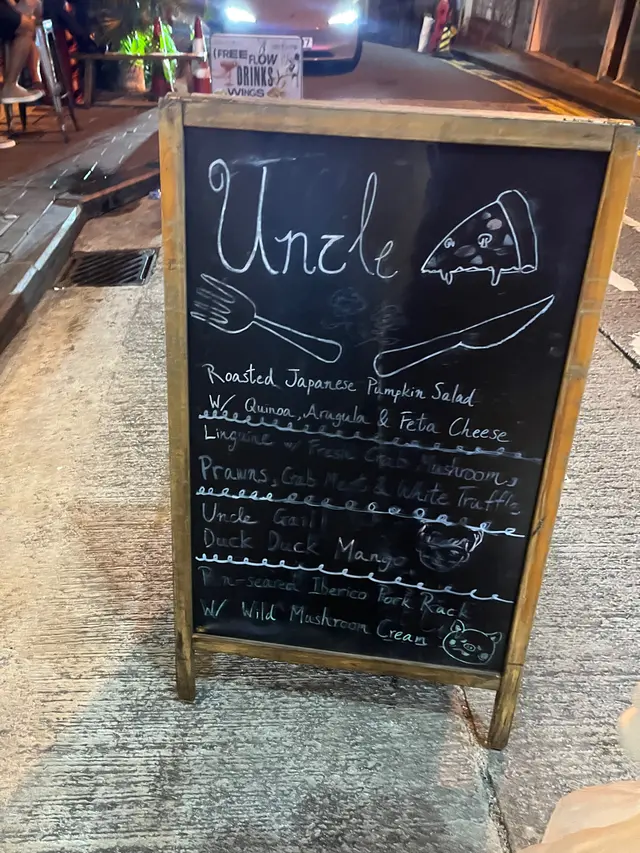 FREE FLOW
DRINKS
WINGS
Uncle
Roasted Japanese Pumpkin Salad
W/ Quinoa, Arugula & Feta Cheese
Linguine w/ Fresh Crab Mushrooms
Prawns, Crab Meat & White Truffle
Uncle
Duck Duck Mango
Pan-seared Iberico Pork Rack
W/ Wild Mushroom Cream